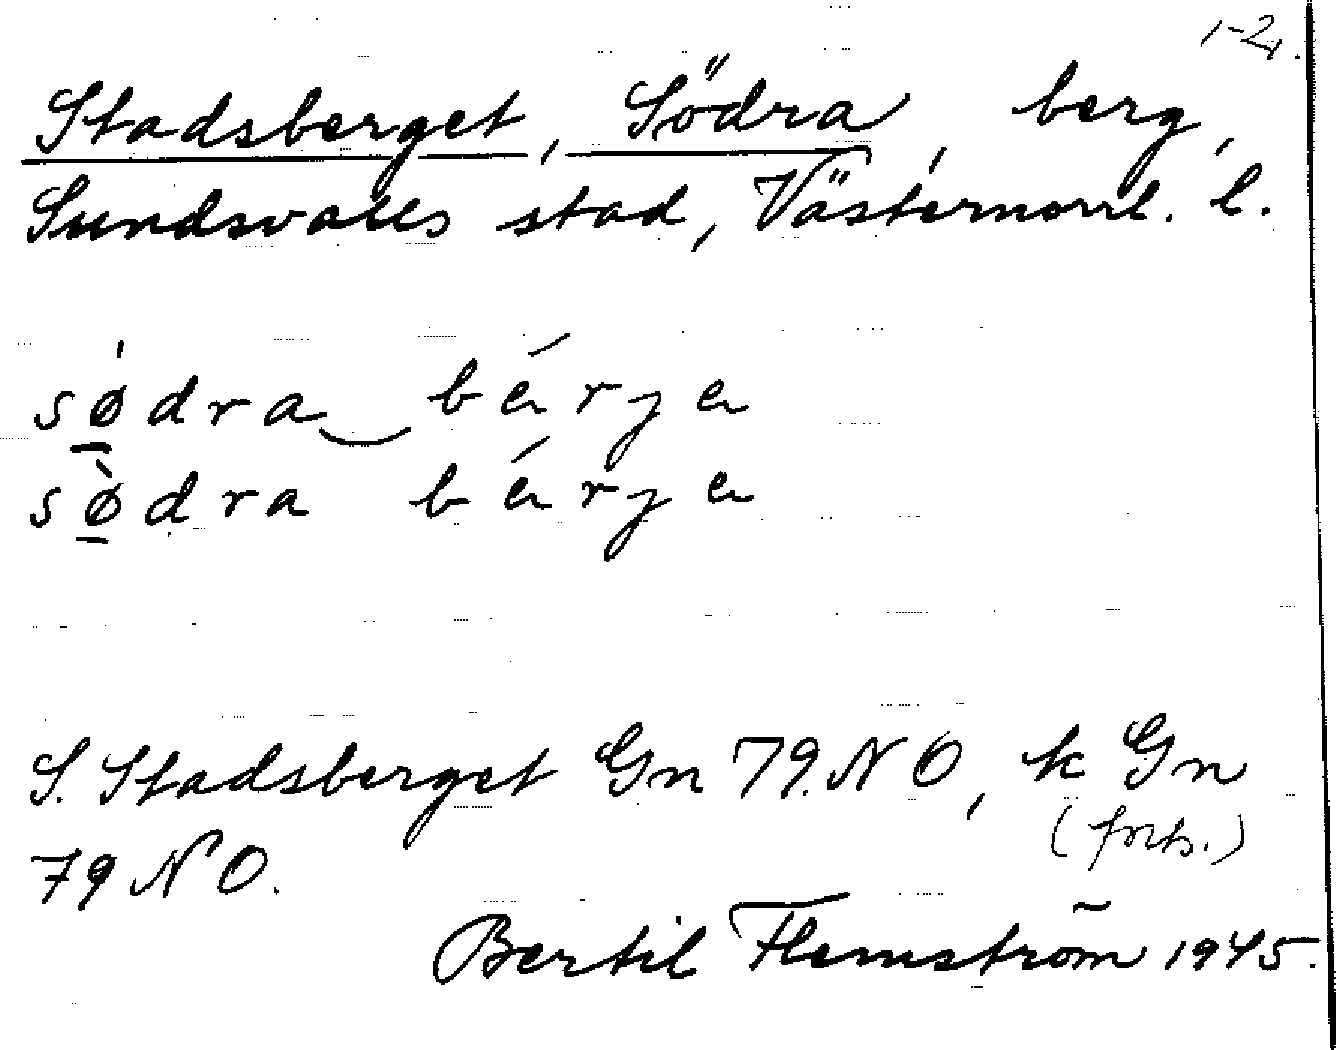 1-2.
Stadsberget, Södra berg,
Sundsvalls stad, Västernorrl. l.
sǿ̱dra‿bérje
sø̱̀dra bérje
S. Stadsberget Gn 79.NO, k Gn
(forts.)
79 NO.
Bertil Flemström 1945.